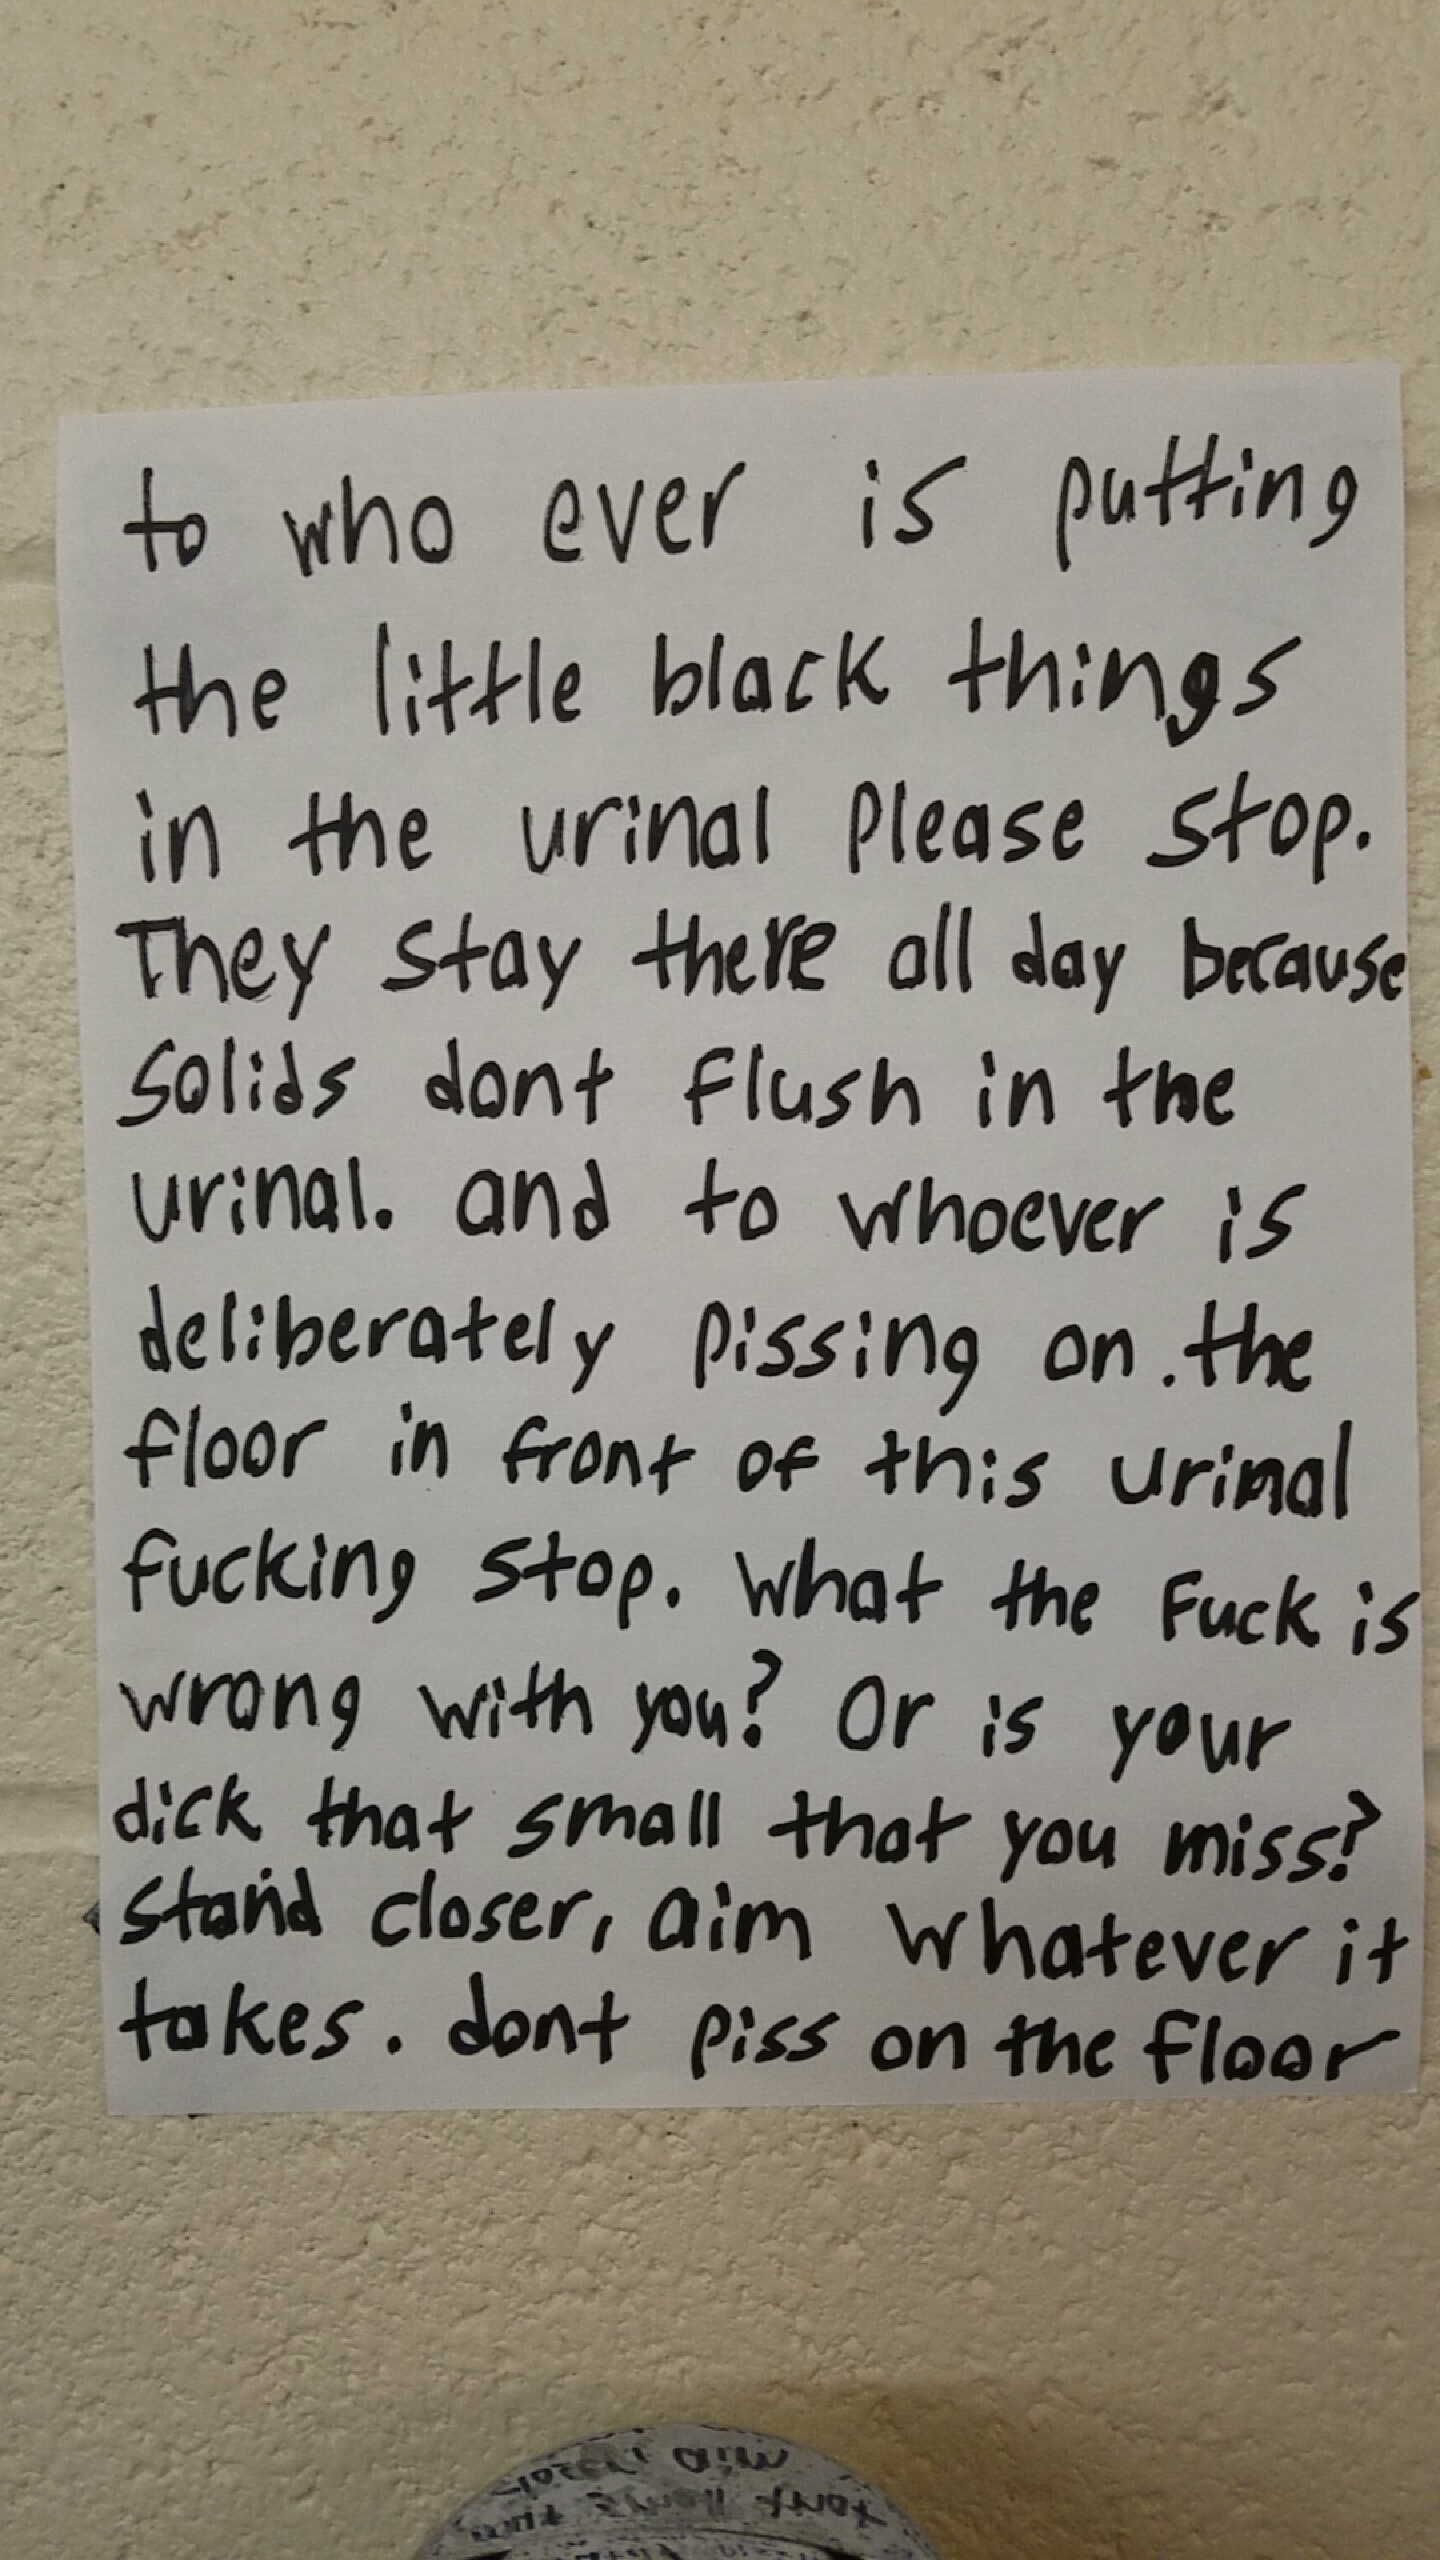 to who ever is putting
the little black things
in the urinal please stop.
They stay there all day because
solids dont flush in the
urinal. and to whoever is
deliberately pissing on . the
floor in front of this urinal
fucking stop. what the fuck is
wrong with you? Or is your
dick that small that you miss?
stand closer, aim whatever it
takes. dont piss on the floor
closer, aim
small that